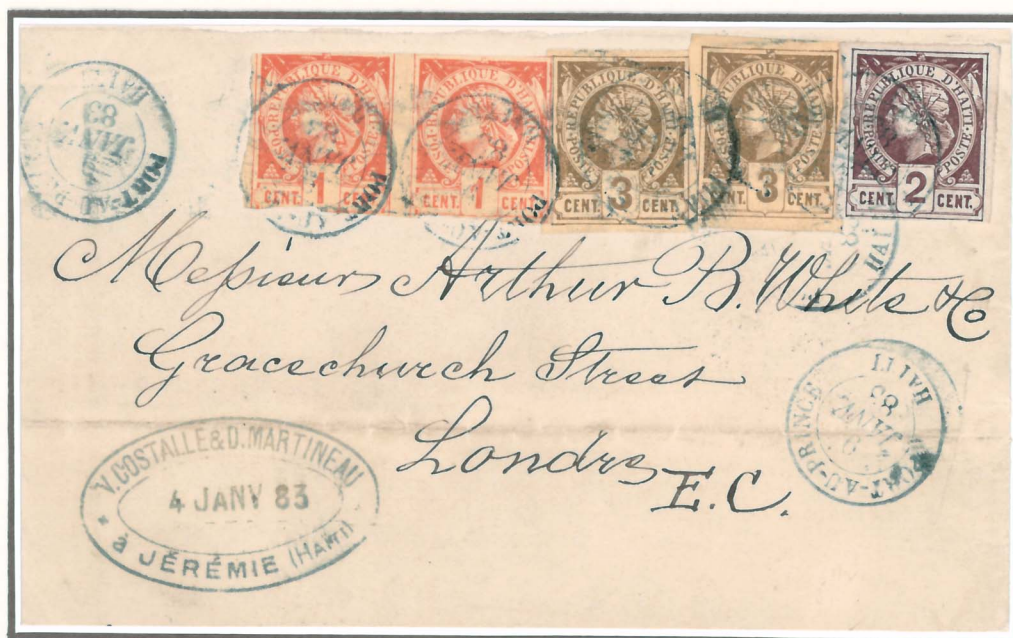 PORT-AU-PRINCE HAITI
JANV
83
REPUBLIQUE D'HAITI
POSTE POSTE
CENT. 1 CENT.
REPUBLIQUE D'HAITI
POSTE POSTE
CENT. 1 CENT.
REPUBLIQUE D'HAITI
POSTE POSTE
CENT. 3 CENT.
REPUBLIQUE D'HAITI
POSTE POSTE
CENT. 3 CENT.
REPUBLIQUE D'HAITI
POSTE POSTE
CENT. 2 CENT.
Messieurs Arthur B. White & Co
Gracechurch Street
Londres
E.C.
PORT-AU-PRINCE HAITI
JANV
83
V. COSTALLE & D. MARTINEAU
4 JANV 83
à JÉRÉMIE (HAITI)